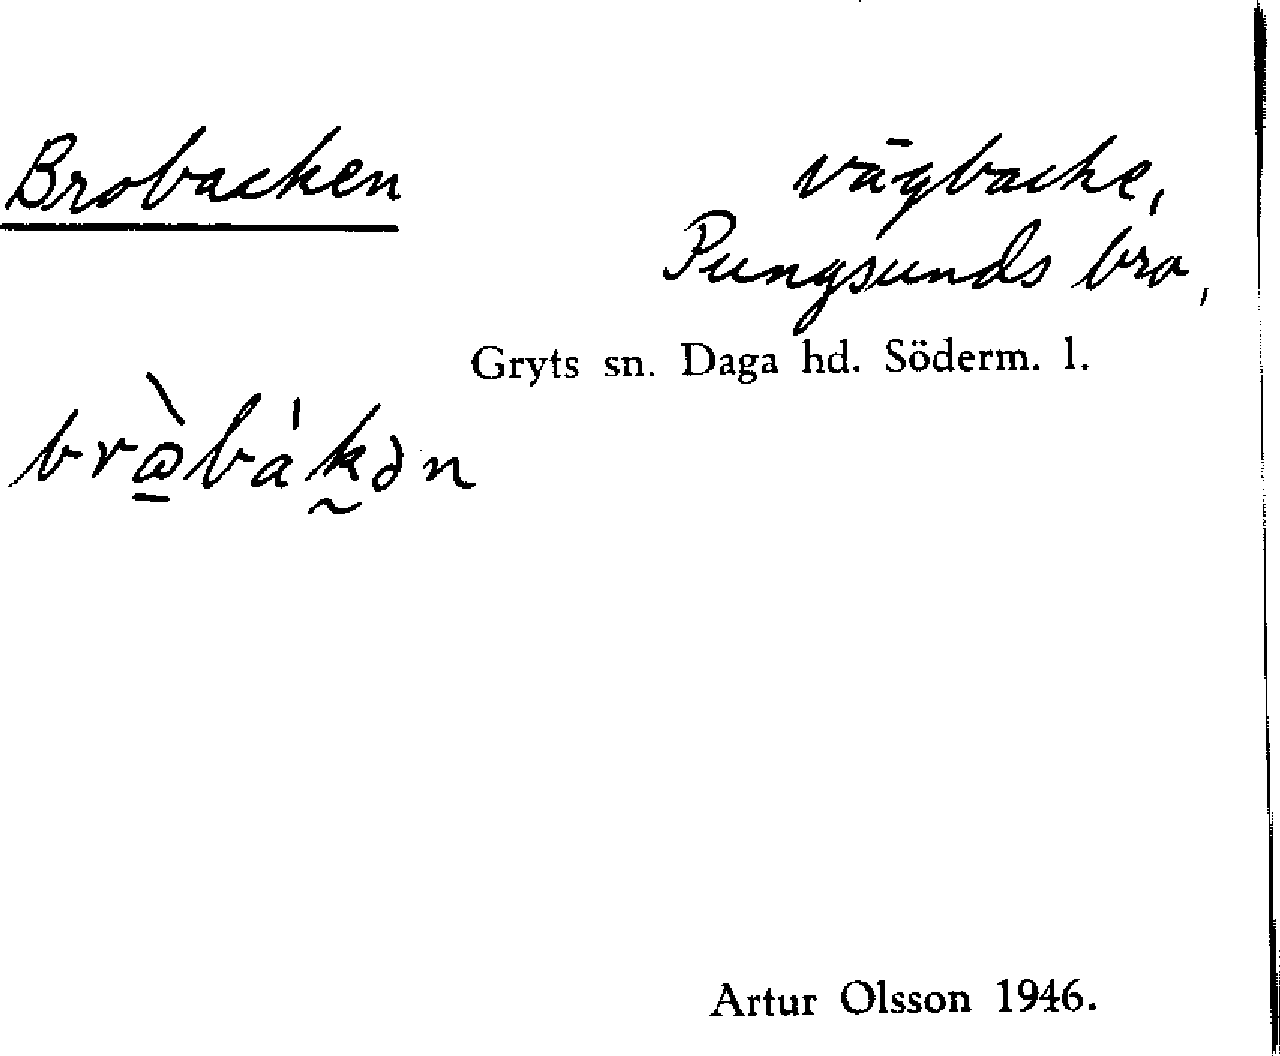 Brobacken
vägbacke,
Pungsunds bro,
Gryts sn. Daga hd. Söderm. l.
brⱺ̀bákən
Artur Olsson 1946.